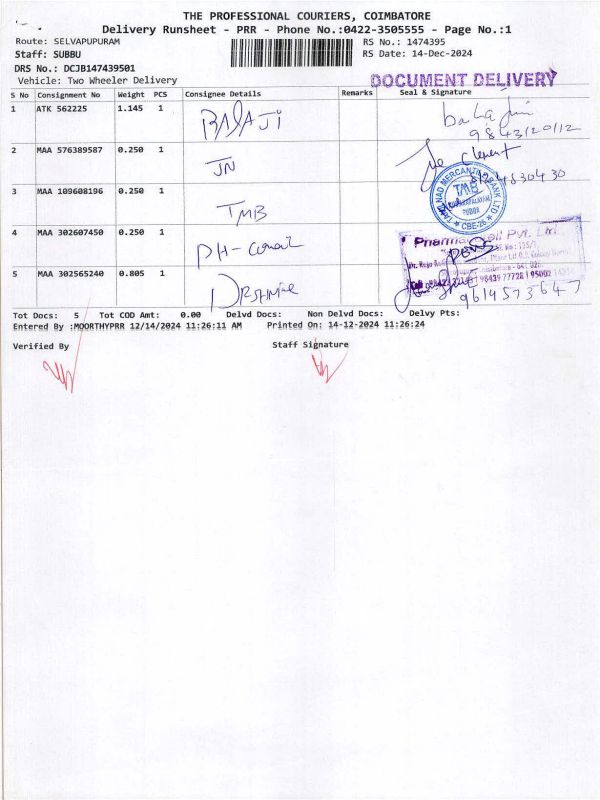 THE PROFESSIONAL COURIERS, COIMBATORE
Delivery Runsheet - PRR - Phone No.:0422-3505555 - Page No.:1
Route: SELVAPUPURAM
RS No.: 1474395
Staff: SUBBU
RS Date: 14-Dec-2024
DRS No.: DCJB147439501
Vehicle: Two Wheeler Delivery
DOCUMENT DELIVERY
S No Consignment No Weight PCS Consignee Details Remarks Seal & Signature
1 ATK 562225 1.145 1 BALAJI
9843120112
2 MAA 576389587 0.250 1 JN
Clement
3 MAA 109608196 0.250 1 TMB
TAMILNAD MERCANTILE BANK LTD
TMB
CBE-26
4 MAA 302607450 0.250 1 PH-
Pvt. Ltd.
5 MAA 302565240 0.805 1
9614573647
Tot Docs: 5 Tot COD Amt: 0.00 Delvd Docs: Non Delvd Docs: Delvy Pts:
Entered By :MOORTHYPRR 12/14/2024 11:26:11 AM Printed On: 14-12-2024 11:26:24
Verified By Staff Signature